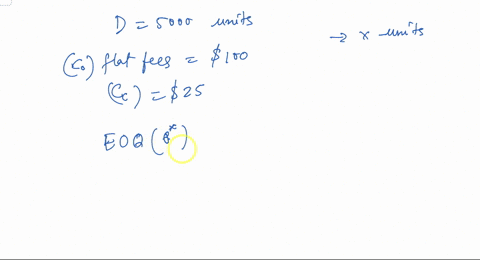 D = 5000 units
→ x units
(C₀) flat fees = $100
(Cc) = $25
EOQ (Q*)